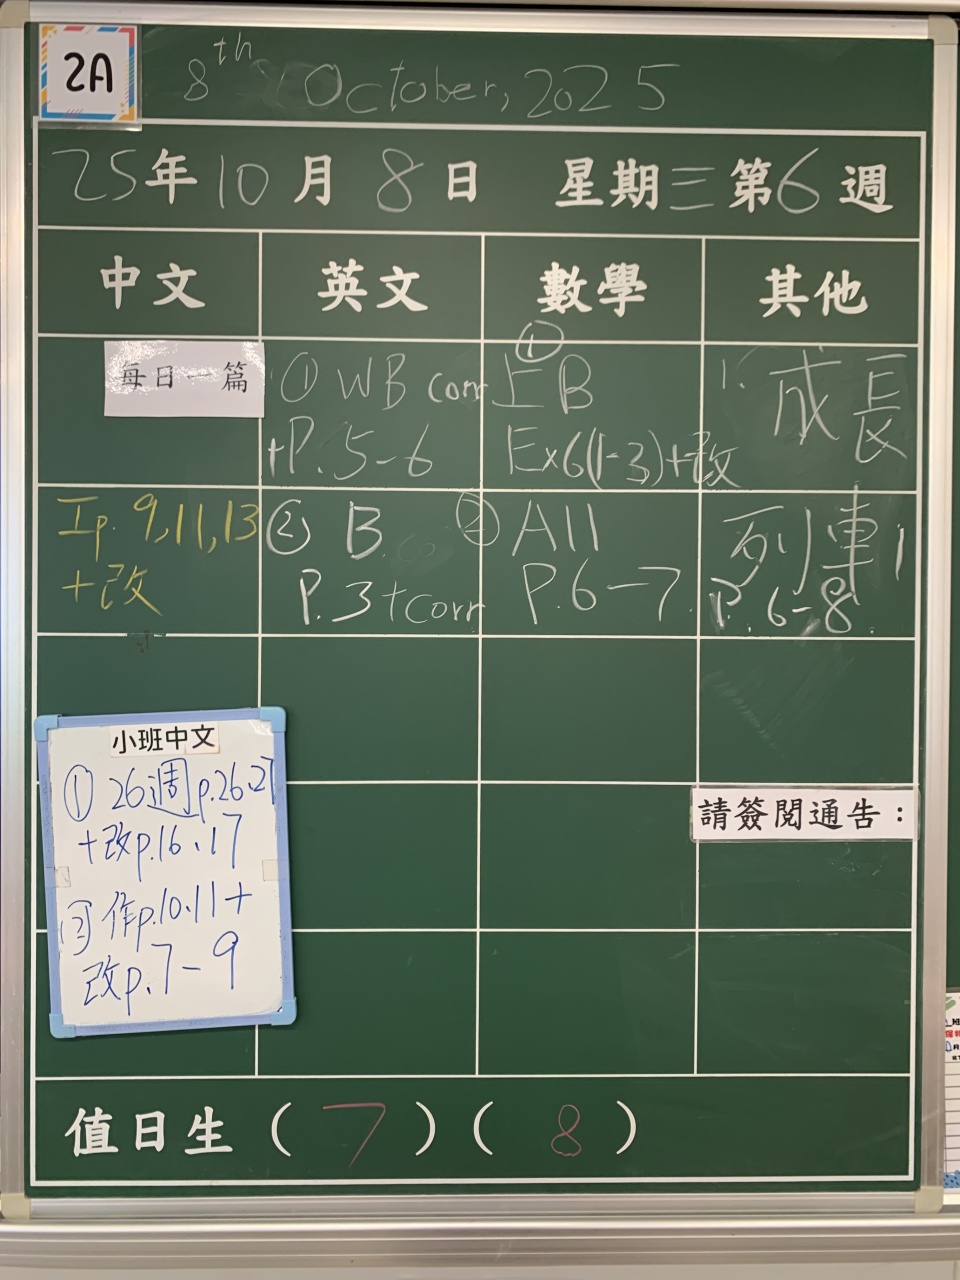 2A
8th October, 2025
25年10月8日 星期三第6週
中文 英文 數學 其他
每日一篇
工p. 9,11,13
+改
① WB corr
+P. 5-6
② B
P.3+corr
① 上B
Ex6(1-3)+改
② A11
P.6-7
1. 成長
列車1
P. 6-8
小班中文
① 26週p.26.27
+改p.16、17
② 作p.10、11+
改p.7-9
請簽閱通告：
值日生（7）（8）